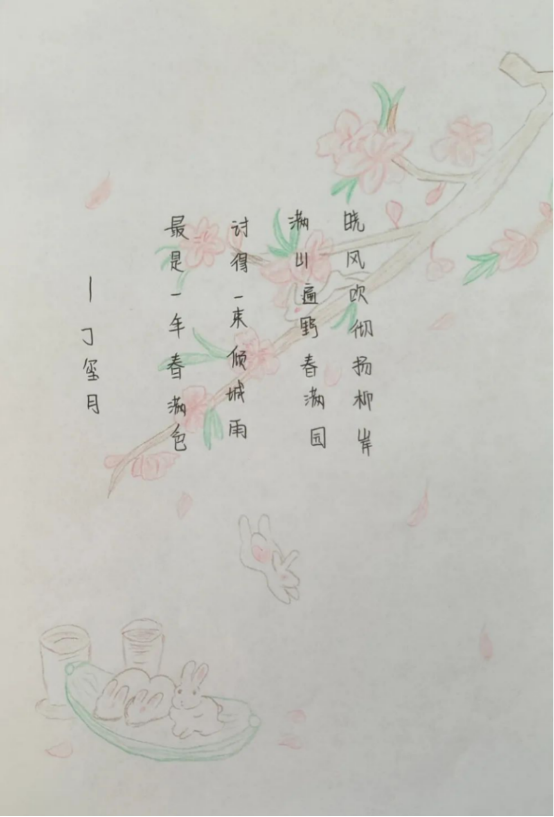 晓风吹彻扬柳岸
满山遍野春满园
讨得一束倾城雨
最是一年春满色
—丁玺月